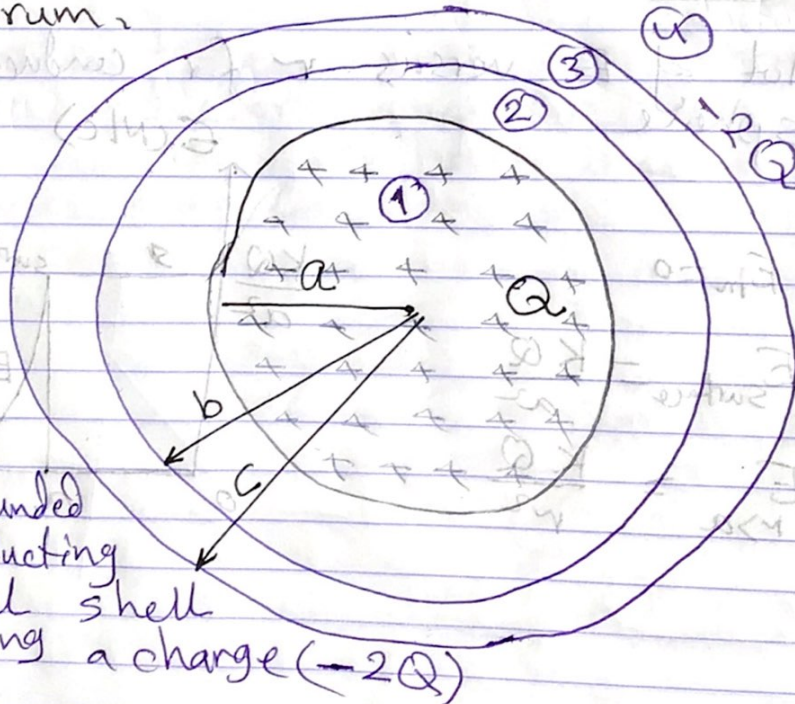 rum.
4
3
2
-2Q
1
a
Q
b
c
unded
ucting
l shell
ng a charge (-2Q)